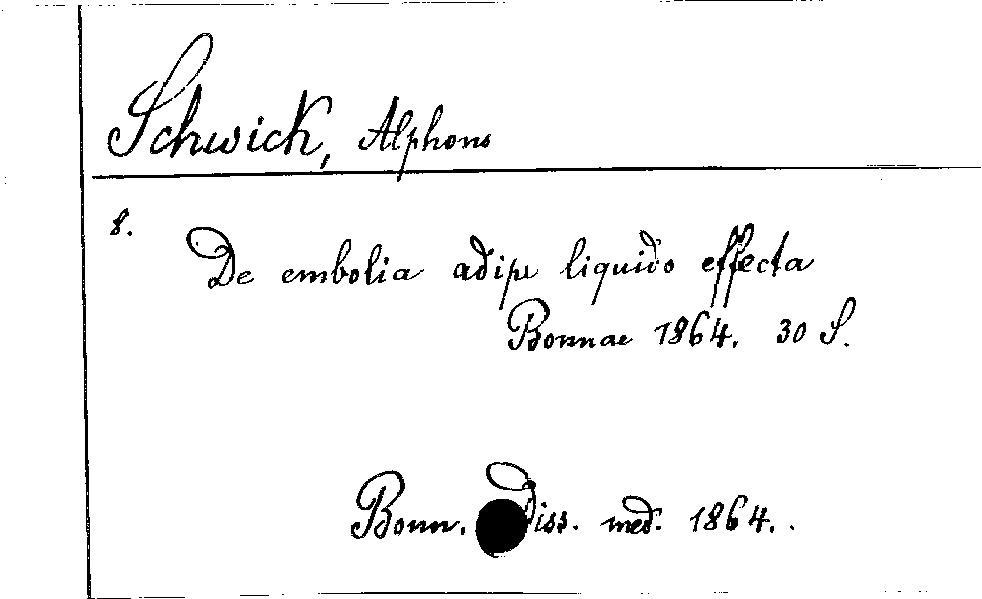 Schwick, Alphons
8.
De embolia adipe liquido effecta
Bonnae 1864. 30 S.
Bonn. Diss. med. 1864.